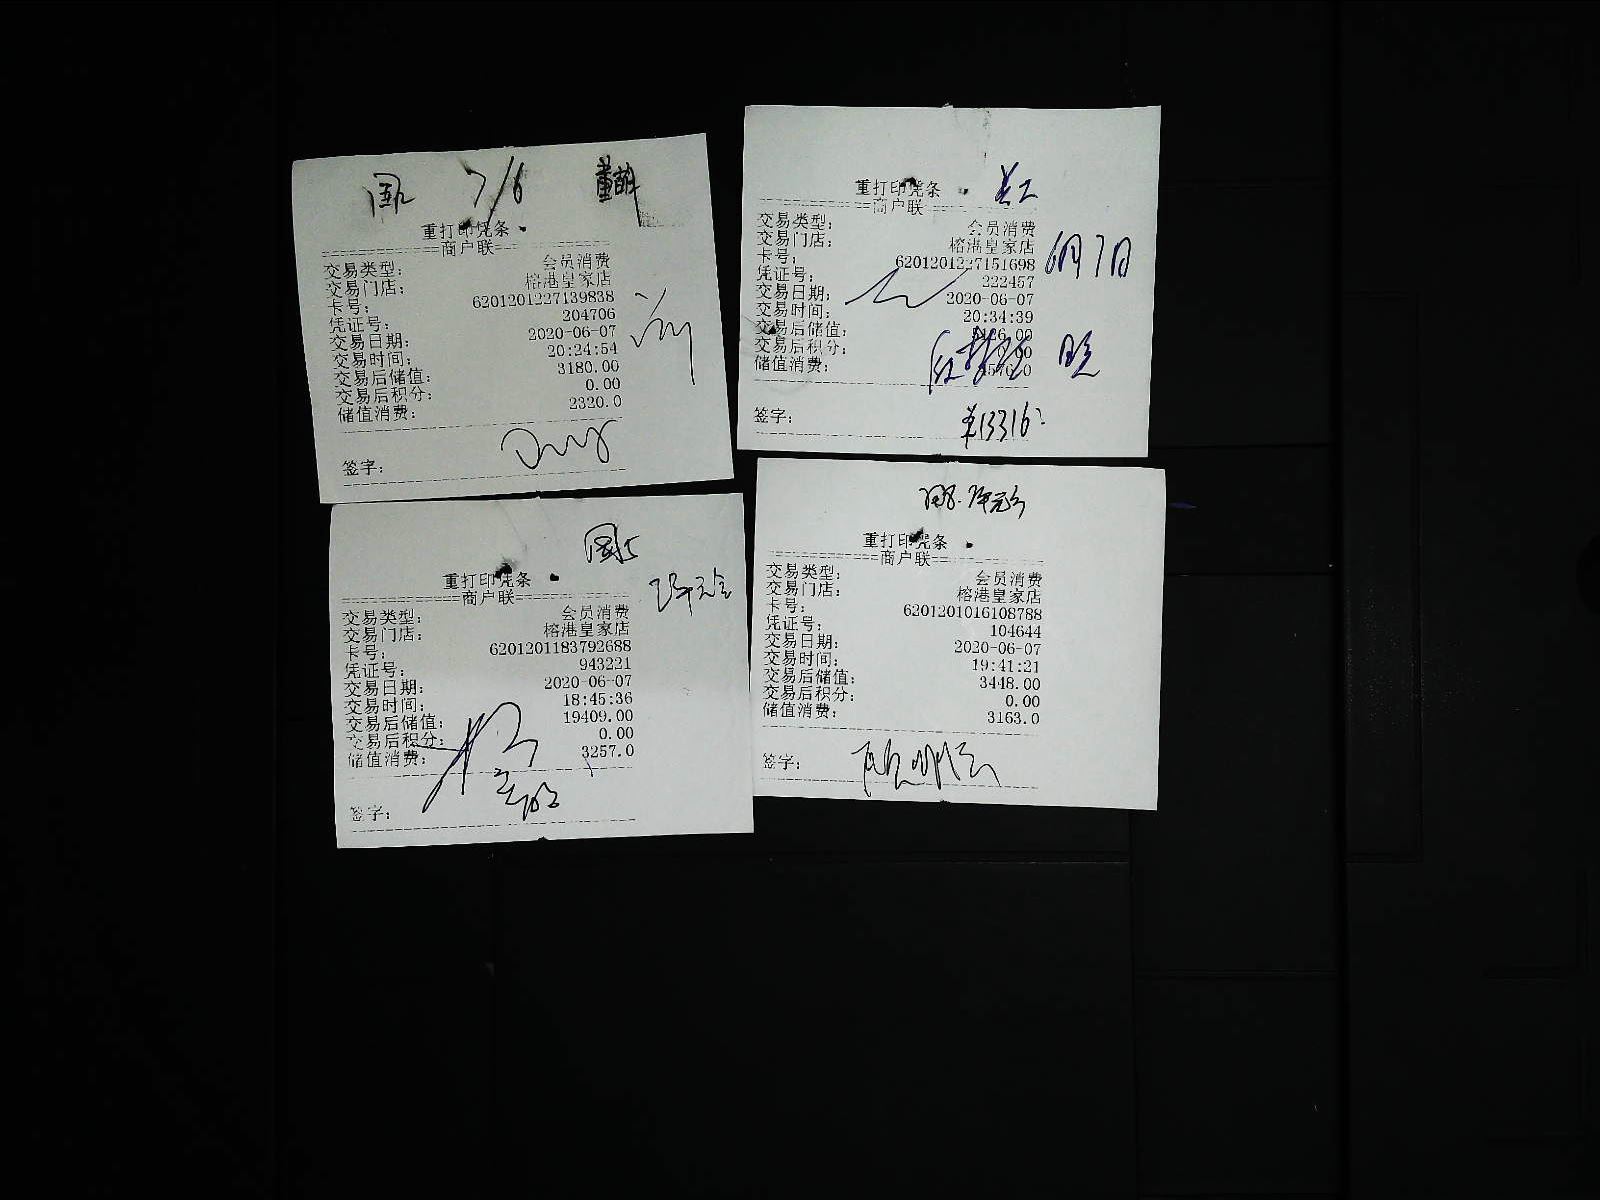 7/6
重打印凭条
==商户联==
交易类型: 会员消费
交易门店: 榕港皇家店
卡号: 6201201227139838
凭证号: 204706
交易日期: 2020-06-07
交易时间: 20:24:54
交易后储值: 3180.00
交易后积分: 0.00
储值消费: 2320.0
签字:
重打印凭条
==商户联==
交易类型: 会员消费
交易门店: 榕港皇家店
卡号: 6201201227151698
6月7日
凭证号: 222457
交易日期: 2020-06-07
交易时间: 20:34:39
交易后储值:
交易后积分:
储值消费:
签字:
¥13316
重打印凭条
==商户联==
交易类型: 会员消费
交易门店: 榕港皇家店
卡号: 6201201183792688
凭证号: 943221
交易日期: 2020-06-07
交易时间: 18:45:36
交易后储值: 19409.00
交易后积分: 0.00
储值消费: 3257.0
签字:
重打印凭条
==商户联==
交易类型: 会员消费
交易门店: 榕港皇家店
卡号: 6201201016108788
凭证号: 104644
交易日期: 2020-06-07
交易时间: 19:41:21
交易后储值: 3448.00
交易后积分: 0.00
储值消费: 3163.0
签字: